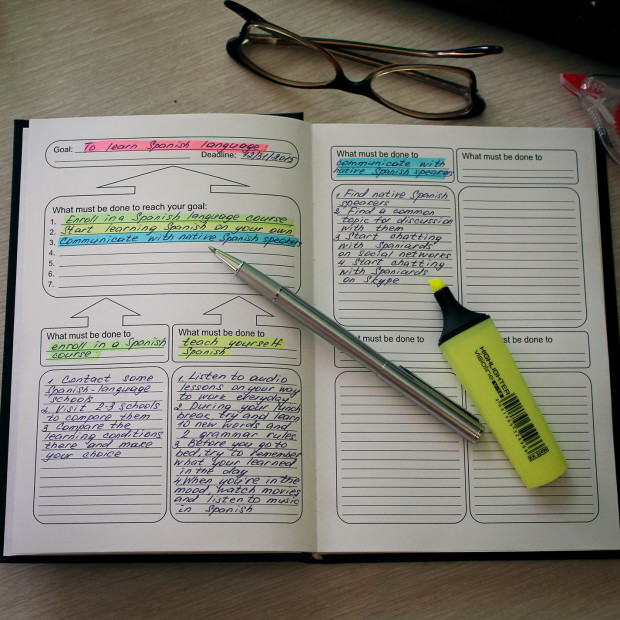 Goal: To learn Spanish language
Deadline: 12/31/2015
What must be done to reach your goal:
1. Enroll in a Spanish language course
2. Start learning Spanish on your own
3. Communicate with native Spanish speakers
4.
5.
6.
7.
What must be done to
enroll in a Spanish
course
1. Contact some
Spanish-language
schools
2. Visit 2-3 schools
to compare them
3 Compare the
learning conditions
there and make
your choice
What must be done to
teach yourself
Spanish
1. Listen to audio
lessons on your way
to work everyday
2. During your lunch
break, try and learn
10 new words and
2 grammar rules
3. Before you go to
bed, try to remember
what your learned
in the day
4. When you're in the
mood, watch movies
and listen to music
in Spanish
What must be done to
communicate with
native Spanish speakers
1. Find native Spanish
speakers
2. Find a common
topic for discussion
with them
3 Start chatting
with Spaniards
on social networks
4 Start chatting
with Spaniards
on Skype
What must be done to
What must be done to
must be done to
HIGHLIGHTER